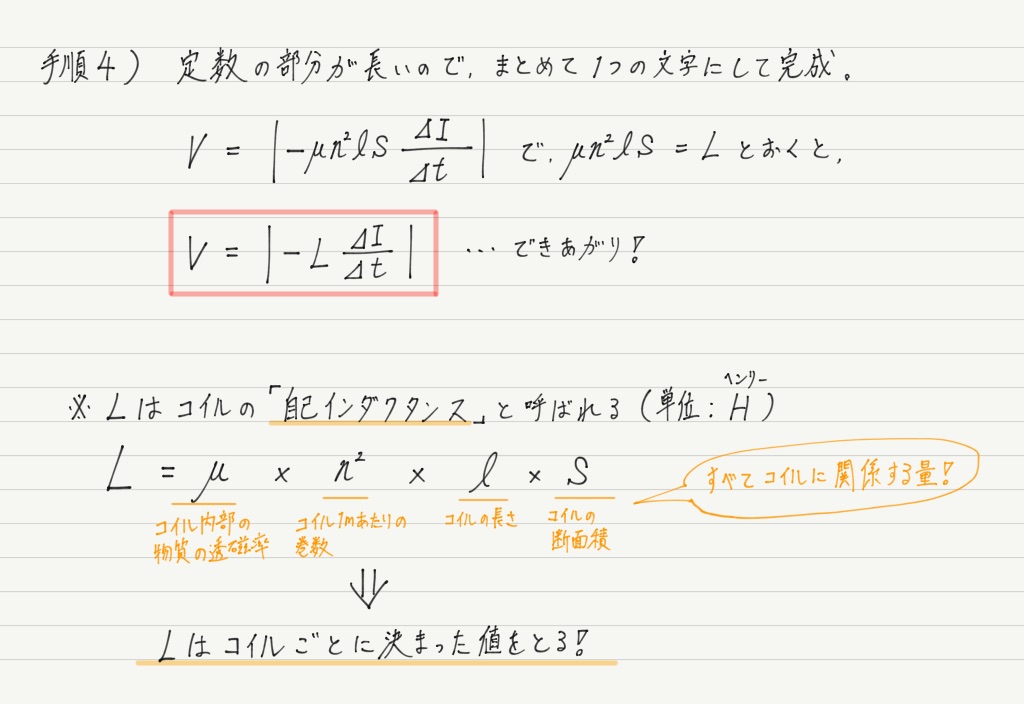 手順4) 定数の部分が長いので、まとめて1つの文字にして完成。
V = |-μn²lS ΔI/Δt| で、μn²lS = L とおくと、
V = |-L ΔI/Δt| … できあがり！
※ Lはコイルの「自己インダクタンス」と呼ばれる (単位: H)
ヘンリー
L = μ × n² × l × S
すべてコイルに関係する量！
コイル内部の物質の透磁率
コイル1mあたりの巻数
コイルの長さ
コイルの断面積
⇓
Lはコイルごとに決まった値をとる！